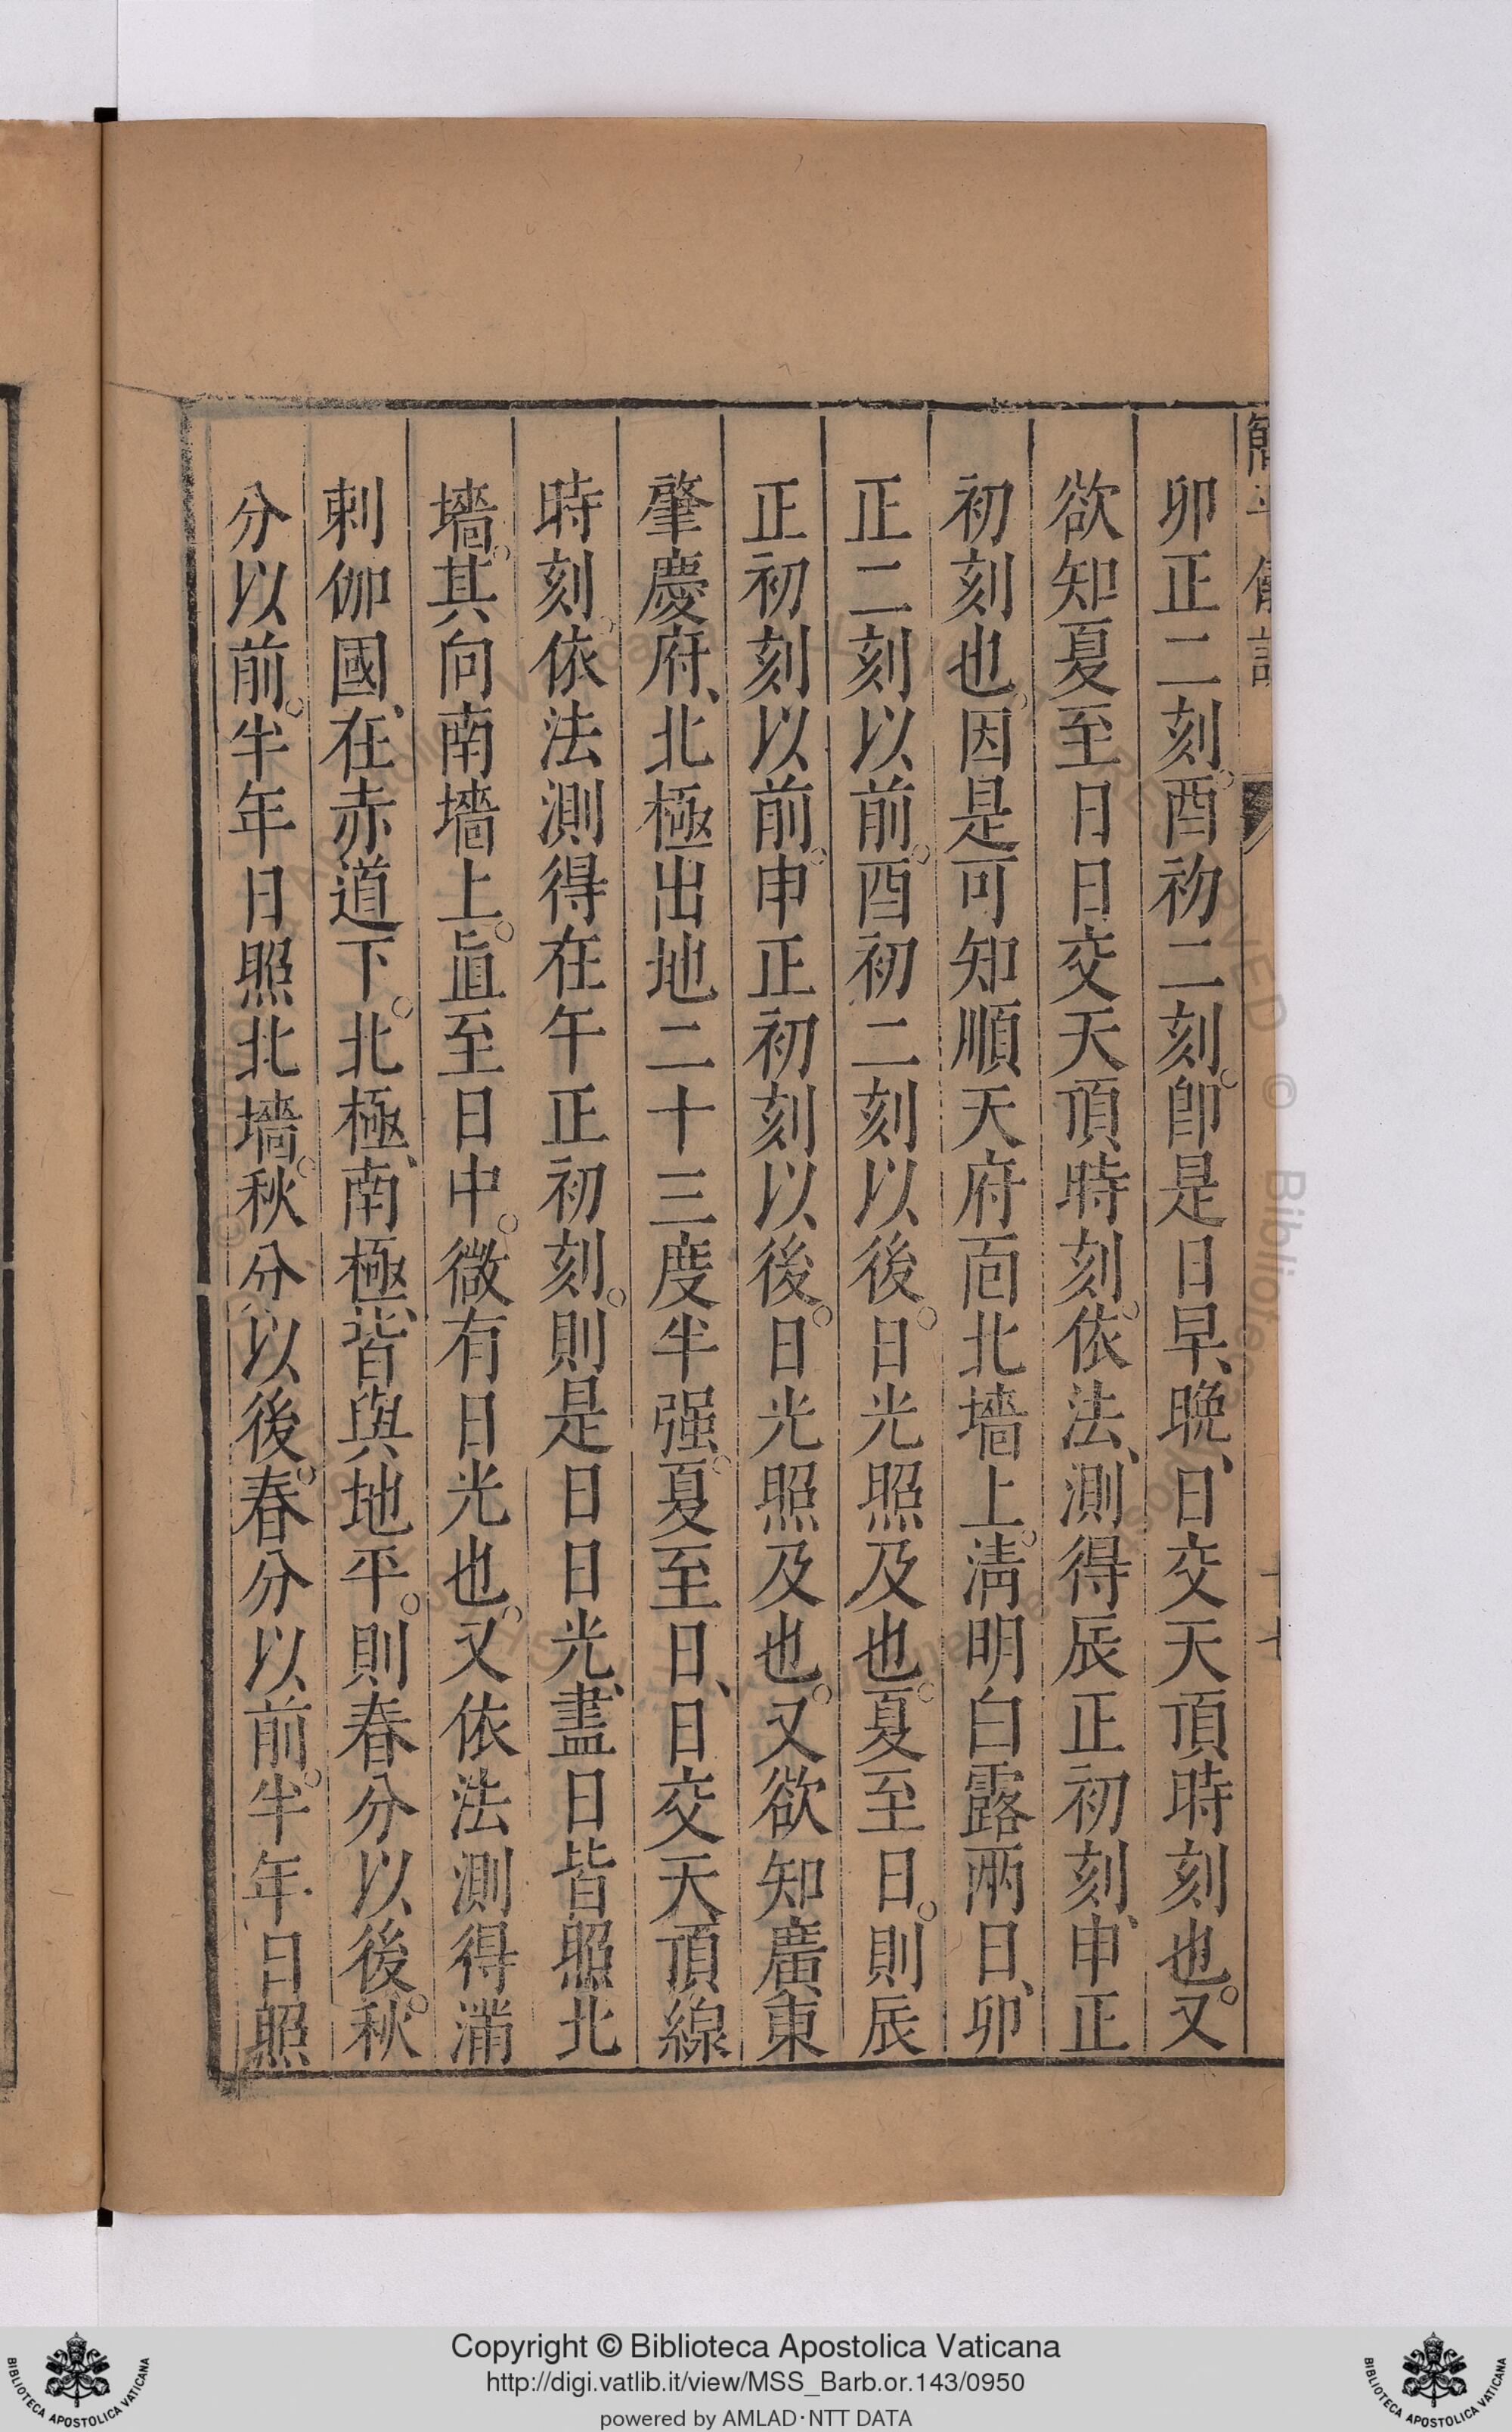 卯正二刻。酉初二刻。卽是日早、晩、日交天頂時刻也。又
欲知夏至日日交天頂時刻。依法、測得辰正初刻、申正
初刻也。因是可知順天府靣北墻上。淸明白露兩日、卯
正二刻以前。酉初二刻以後。日光照及也。夏至日。則辰
正初刻以前。申正初刻以後。日光照及也。又欲知廣東
肇慶府、北極出地二十三度半强。夏至日、日交天頂線
時刻。依法測得在午正初刻。則是日日光、盡日皆照北
墻。其向南墻上。直至日中。微有日光也。又依法測得滿
剌伽國、在赤道下。北極、南極、皆與地平。則春分以後。秋
分以前。半年日照北墻。秋分以後。春分以前。半年日照
Copyright © Biblioteca Apostolica Vaticana
http://digi.vatlib.it/view/MSS_Barb.or.143/0950
powered by AMLAD·NTT DATA
BIBLIOTECA APOSTOLICA VATICANA
BIBLIOTECA APOSTOLICA VATICANA